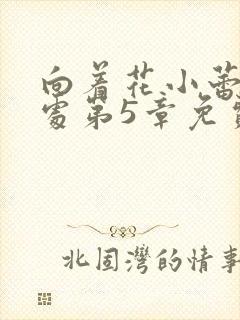 向着花小蕾
处第5章免费
北固湾的情事